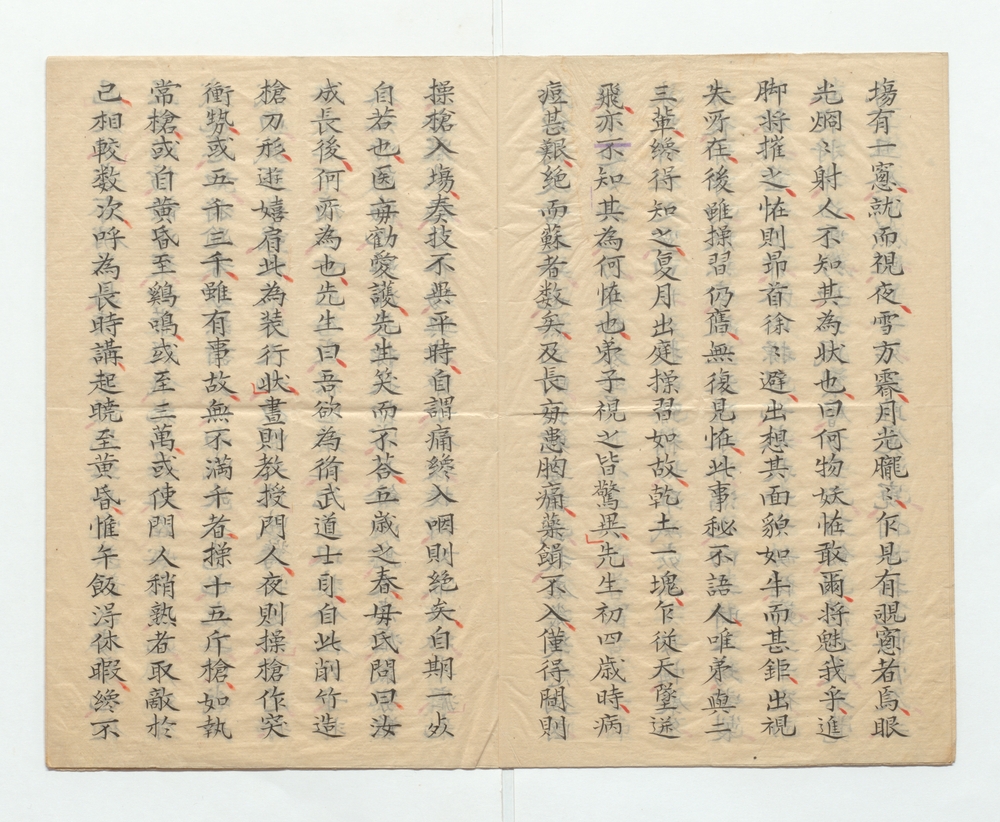 場有一窻就而視夜雪方霽月光朧〻乍見有覗窻者焉眼
光烱〻射人不知其為状也曰何物妖恠敢爾将魅我乎進
脚将摧之恠則昻首徐〻避出想其面貌如牛而甚鉅出視
失所在後雖操習仍舊無復見恠此事秘不語人唯弟與二
三輩終得知之夏月出庭操習如故乾土一塊乍従天墜迸
飛亦不知其為何恠也弟子視之皆驚異先生初四歳時病
痘甚艱絶而蘇者数矣及長毎患胸痛藥餌不入僅得間則
操槍入場奏技不異平時自謂痛終入咽則絶矣自期一死
自若也医毎勸愛護先生笑而不荅五歳之春母氏問曰汝
成長後何所為也先生曰吾欲為脩武道士耳自此削竹造
槍刀形遊嬉肩此為装行状晝則教授門人夜則操槍作突
衝勢或五千三千雖有事故無不満千者操十五斤槍如執
常槍或自黄昏至鷄鳴或至三萬或使門人稍熟者取敵於
己相較数次呼為長時講起曉至黄昏惟午飯得休暇終不